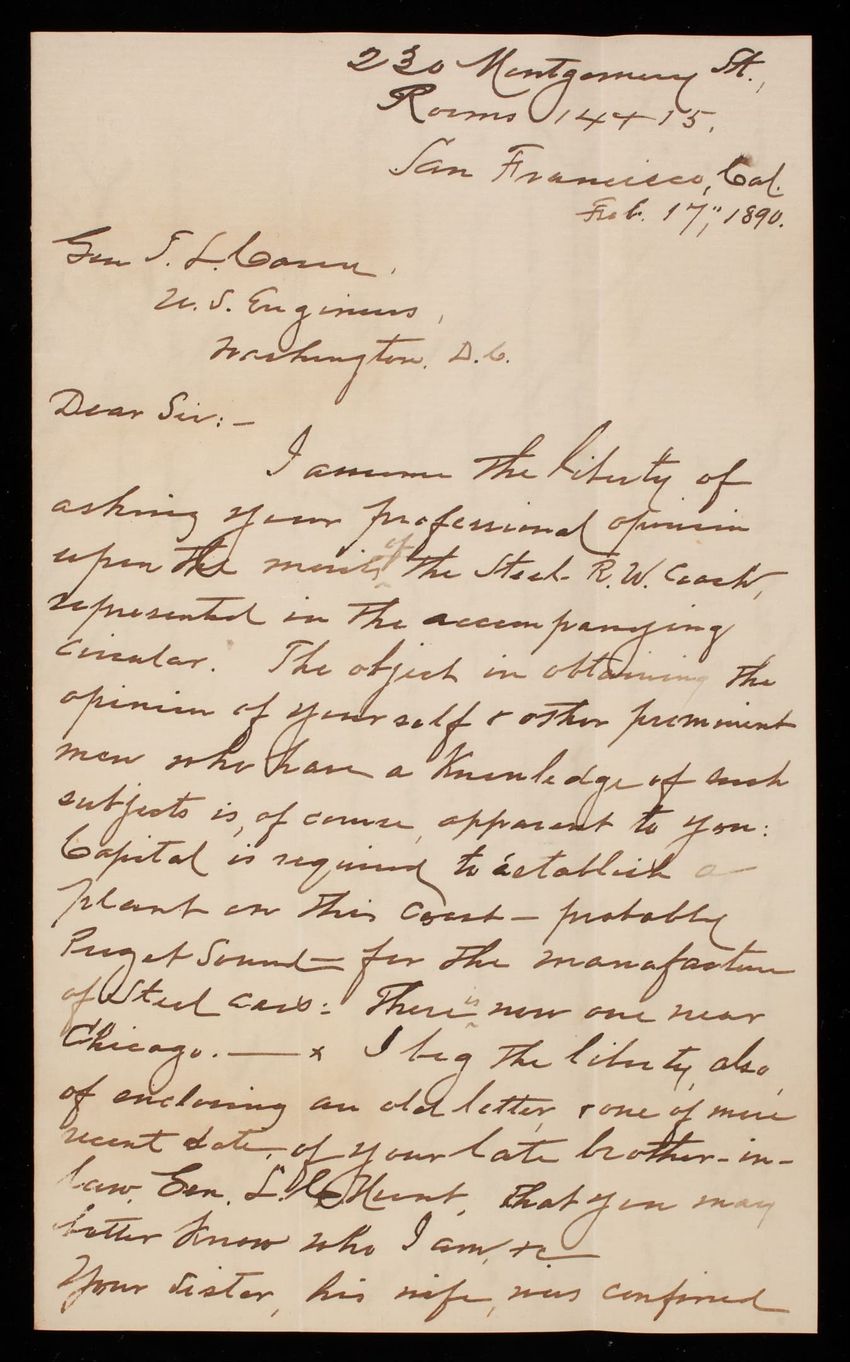 230 Montgomery St.,
Rooms 14 + 15.
San Francisco, Cal.
Feb. 17", 1890.
Gen T. L. Casey,
U. S. Engineers,
Washington. D.C.
Dear Sir:—
I assume the liberty of
asking your professional opinion
upon the merits of the Steel R. W. Coach,
represented in the accompanying
circular. The object in obtaining the
opinion of yourself & other prominent
men who have a knowledge of such
subjects is, of course, apparent to you:
Capital is required to establish a
plant on this coast — probably
Puget Sound — for the manufacture
of Steel cars: There is now one near
Chicago. — x I beg the liberty, also,
of enclosing an old letter, & one of more
recent date, of your late brother-in-
law, Gen. L. C. Hunt, that you may
better know who I am, &c —
Your sister, his wife, was confined